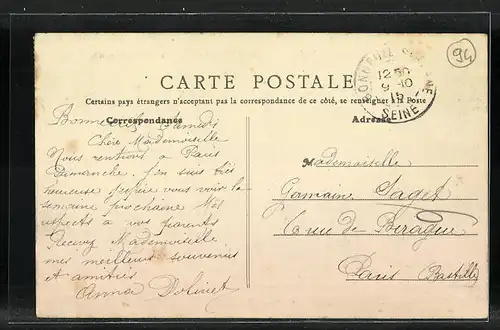 94
BONNEUIL SUR MARNE
12 30
9 -10
15
SEINE
CARTE POSTALE
Certains pays étrangers n'acceptant pas la correspondance de ce côté, se renseigner à la Poste
Correspondance
Adresse
Bonneuil Samedi
Chère Mademoiselle
Nous rentrons à Paris
Dimanche. J'en suis très
heureuse j'espère vous voir la
semaine prochaine Mes
respects à vos parents
Recevez Mademoiselle
mes meilleurs souvenirs
et amitiés
Anna Dolinet
Mademoiselle
Germaine Saget
6 rue de Biragues
Paris Bastille